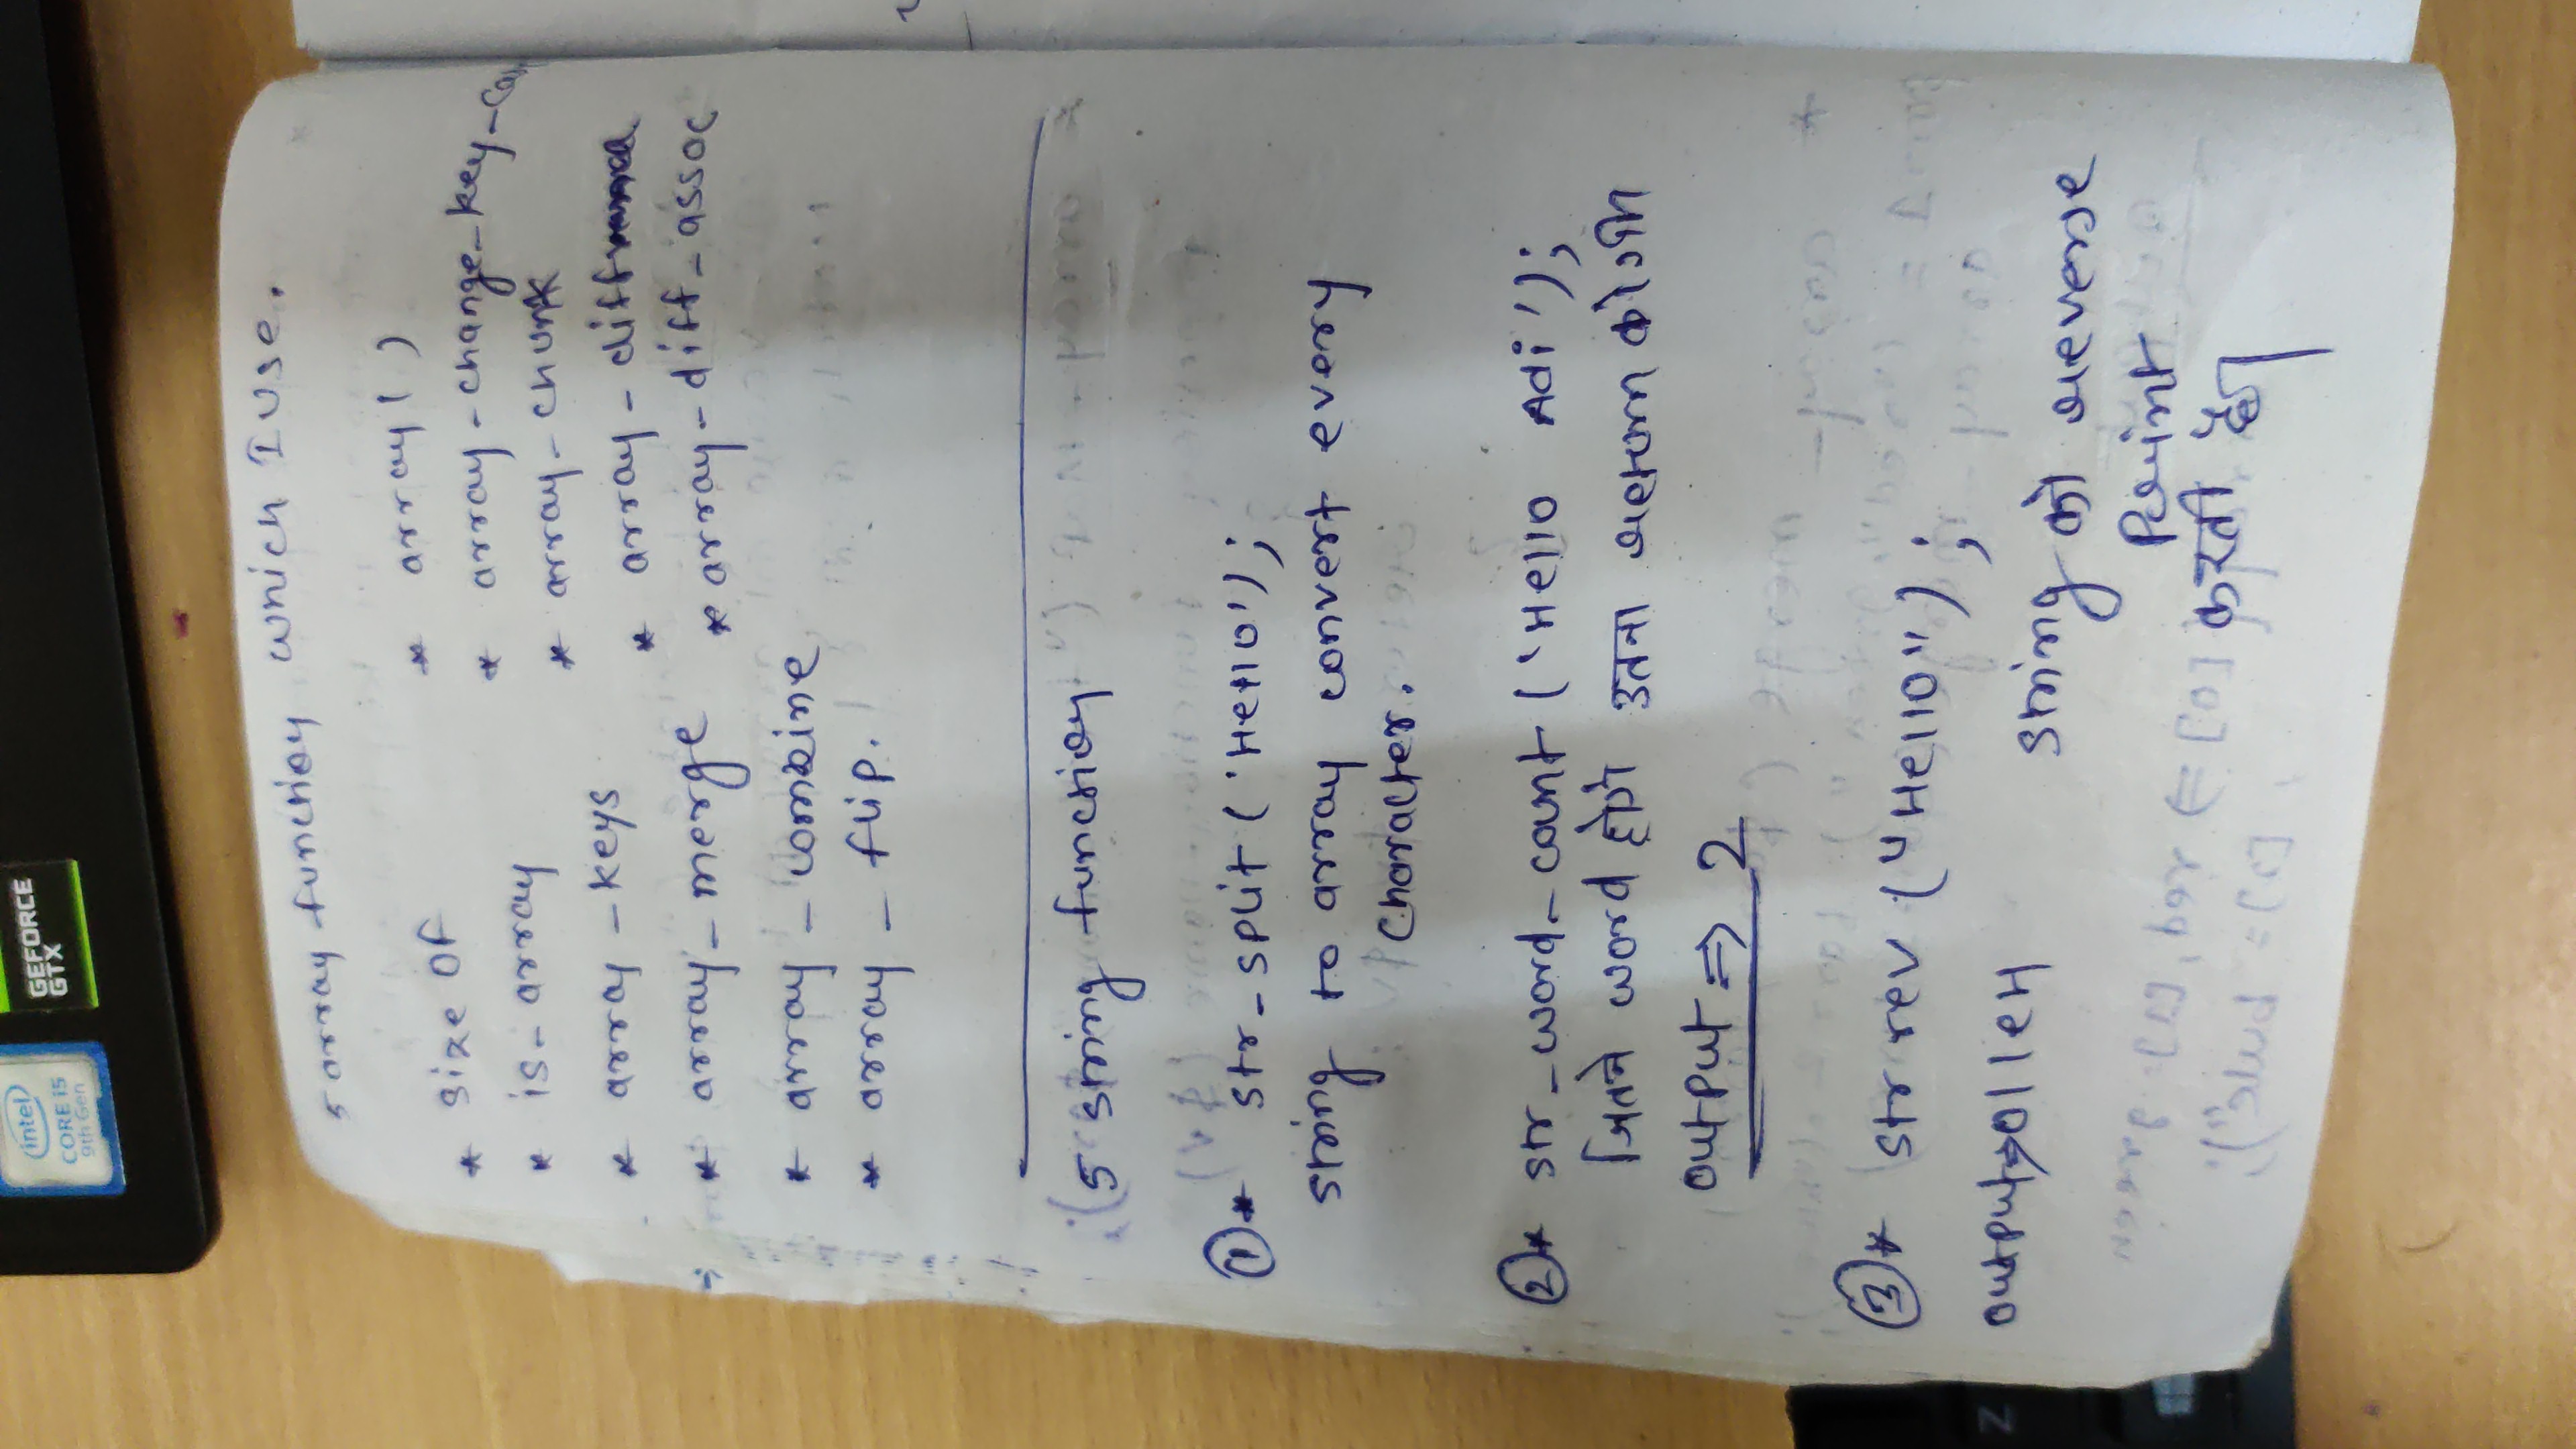 intel
CORE i5
9th Gen
GEFORCE
GTX
5 array function which I use.
* size of
* is-array
* array - keys
* array - merge
* array - combine
* array - flip.
* array ( )
* array - change - key -
* array - chunk
* array - diff
* array - diff - assoc
5 string function
① * str - split ( 'Hello' ) ;
string to array convert every
character.
② * str - word - count ( 'Hello Adi' ) ;
जितने word होंगे उतना return
output ⇒ 2
③ * str rev ( "Hello" ) ;
output ⇒ olleH
string को reverse
Print
करती है।
Z